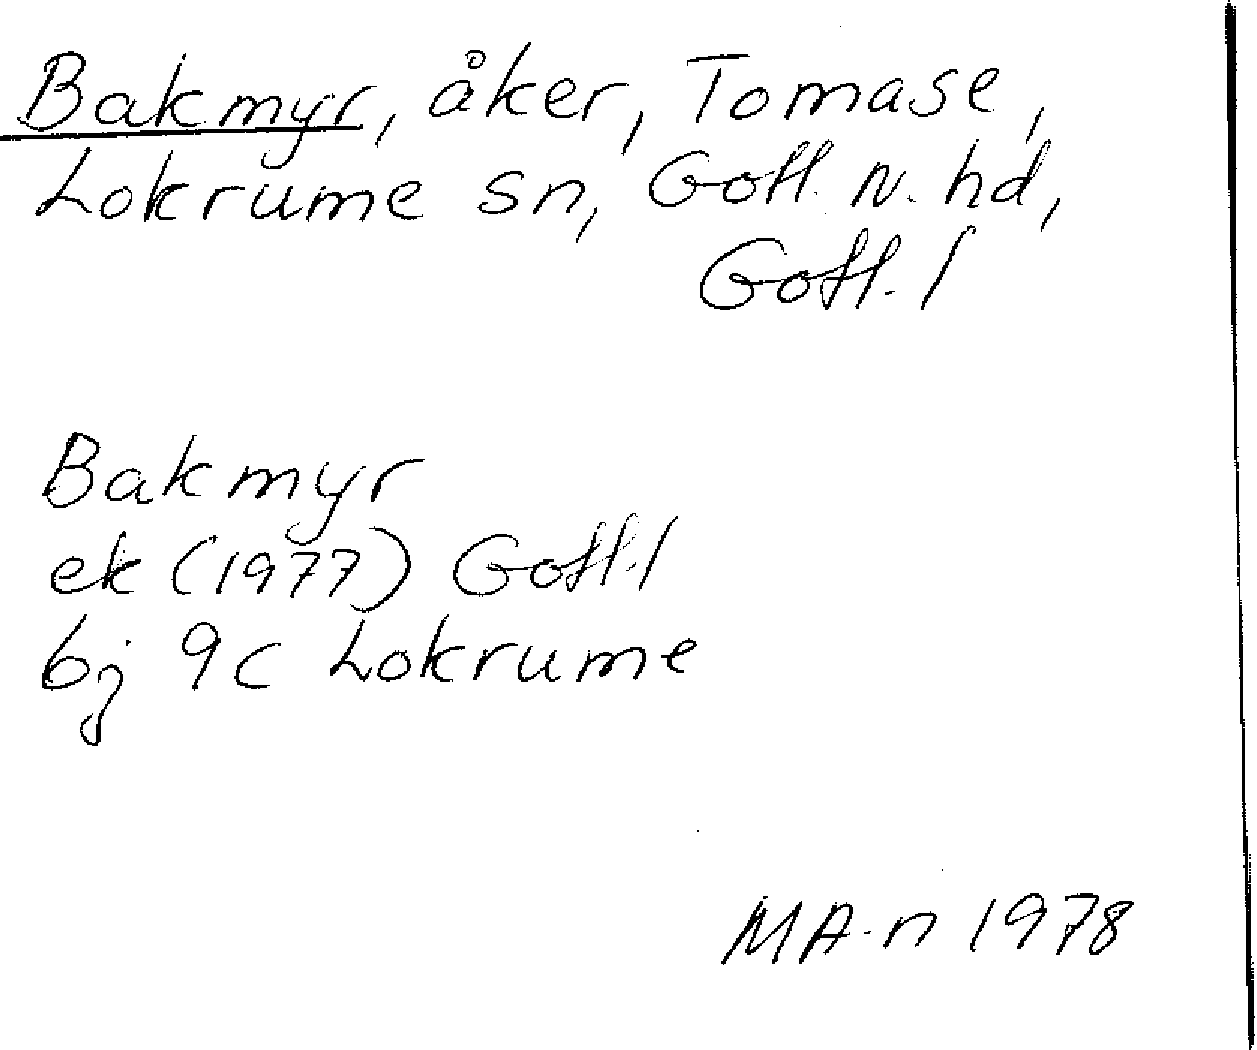 Bakmyr, åker, Tomase,
Lokrume sn, Gotl. N. hd,
Gotl. l
Bakmyr
ek (1977) Gotl. l
6j 9c Lokrume
MA-n 1978